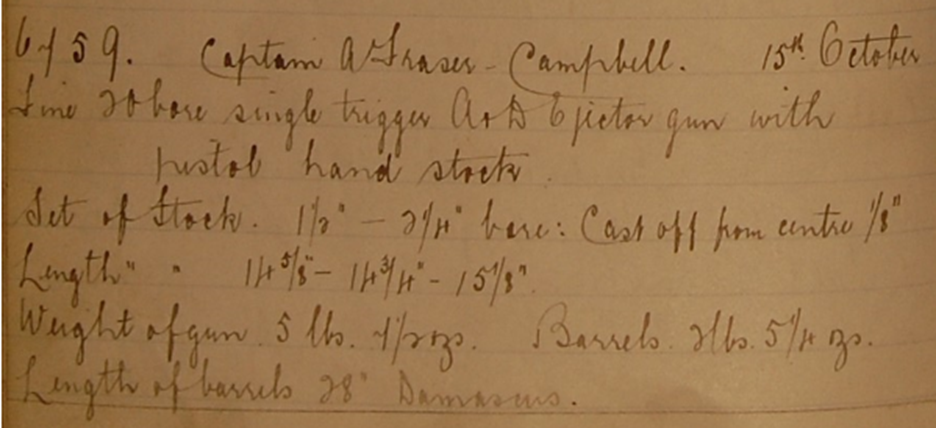 6759. Captain A Fraser-Campbell. 15th October
Fine 20 bore single trigger A & D Ejector gun with
pistol hand stock.
Set of Stock. 1 1/2" - 2 1/4" bare: Cast off from centre 1/8"
Length " " 14 5/8" - 14 3/4" - 15 1/8".
Weight of gun. 5 lbs. 7 1/2 ozs. Barrels. 2 lbs. 5 1/4 ozs.
Length of barrels 28" Damascus.